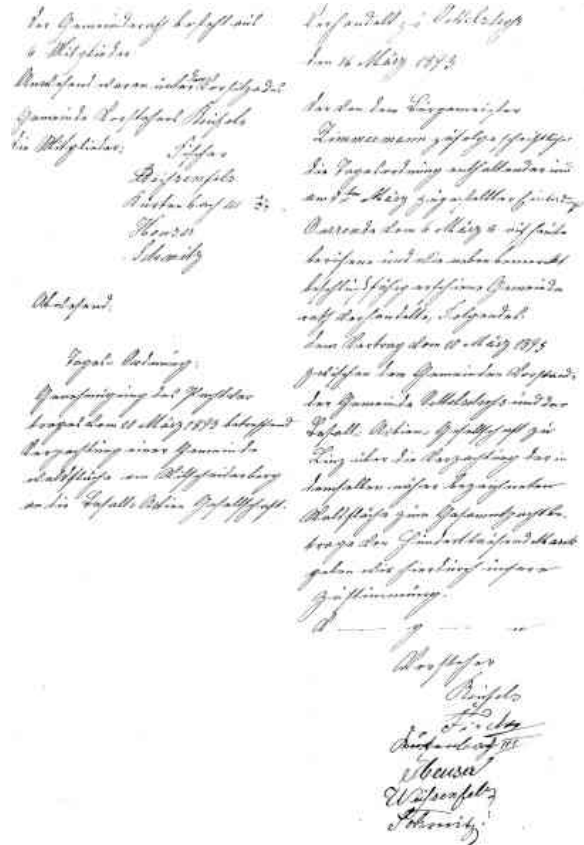 Der Gemeinderath besteht aus
6 Mitglieder
Anwesend waren unter dem Vorsitze des
Gemeinde Vorstehers
die Mitglieder:
Fischer
Weissenfels
Küttenbach III
Heuser
Schmitz
Abwesend.
Tages-Ordnung:
Genehmigung des Pachtver
trages vom 10 März 1893 betreffend
Verpachtung einer Gemeinde
waldfläche am
an die Basalt-Actien Gesellschaft.
Verhandelt zu
den 16 März 1893.
Der von dem Bürgermeister
Zimmermann zufolge schriftlicher
die Tagesordnung enthaltender und
am März zugestellter
vom März
berufene und wie neben bemerkt
beschlußfähig erschienene Gemeinde
rath verhandelte, Folgendes:
dem Vertrag vom 10 März 1893
zwischen dem Gemeinde Vorstand
der Gemeinde und der
Basalt-Actien-Gesellschaft zu
Linz über die Verpachtung der in
demselben näher bezeichneten
Waldfläche zum Gesammtpachtbe
trage von Hunderttausend Mark
geben wir hierdurch unsere
Zustimmung.
V. g. u.
Vorsteher
Fischer
Küttenbach III
Heuser
Weissenfels
Schmitz